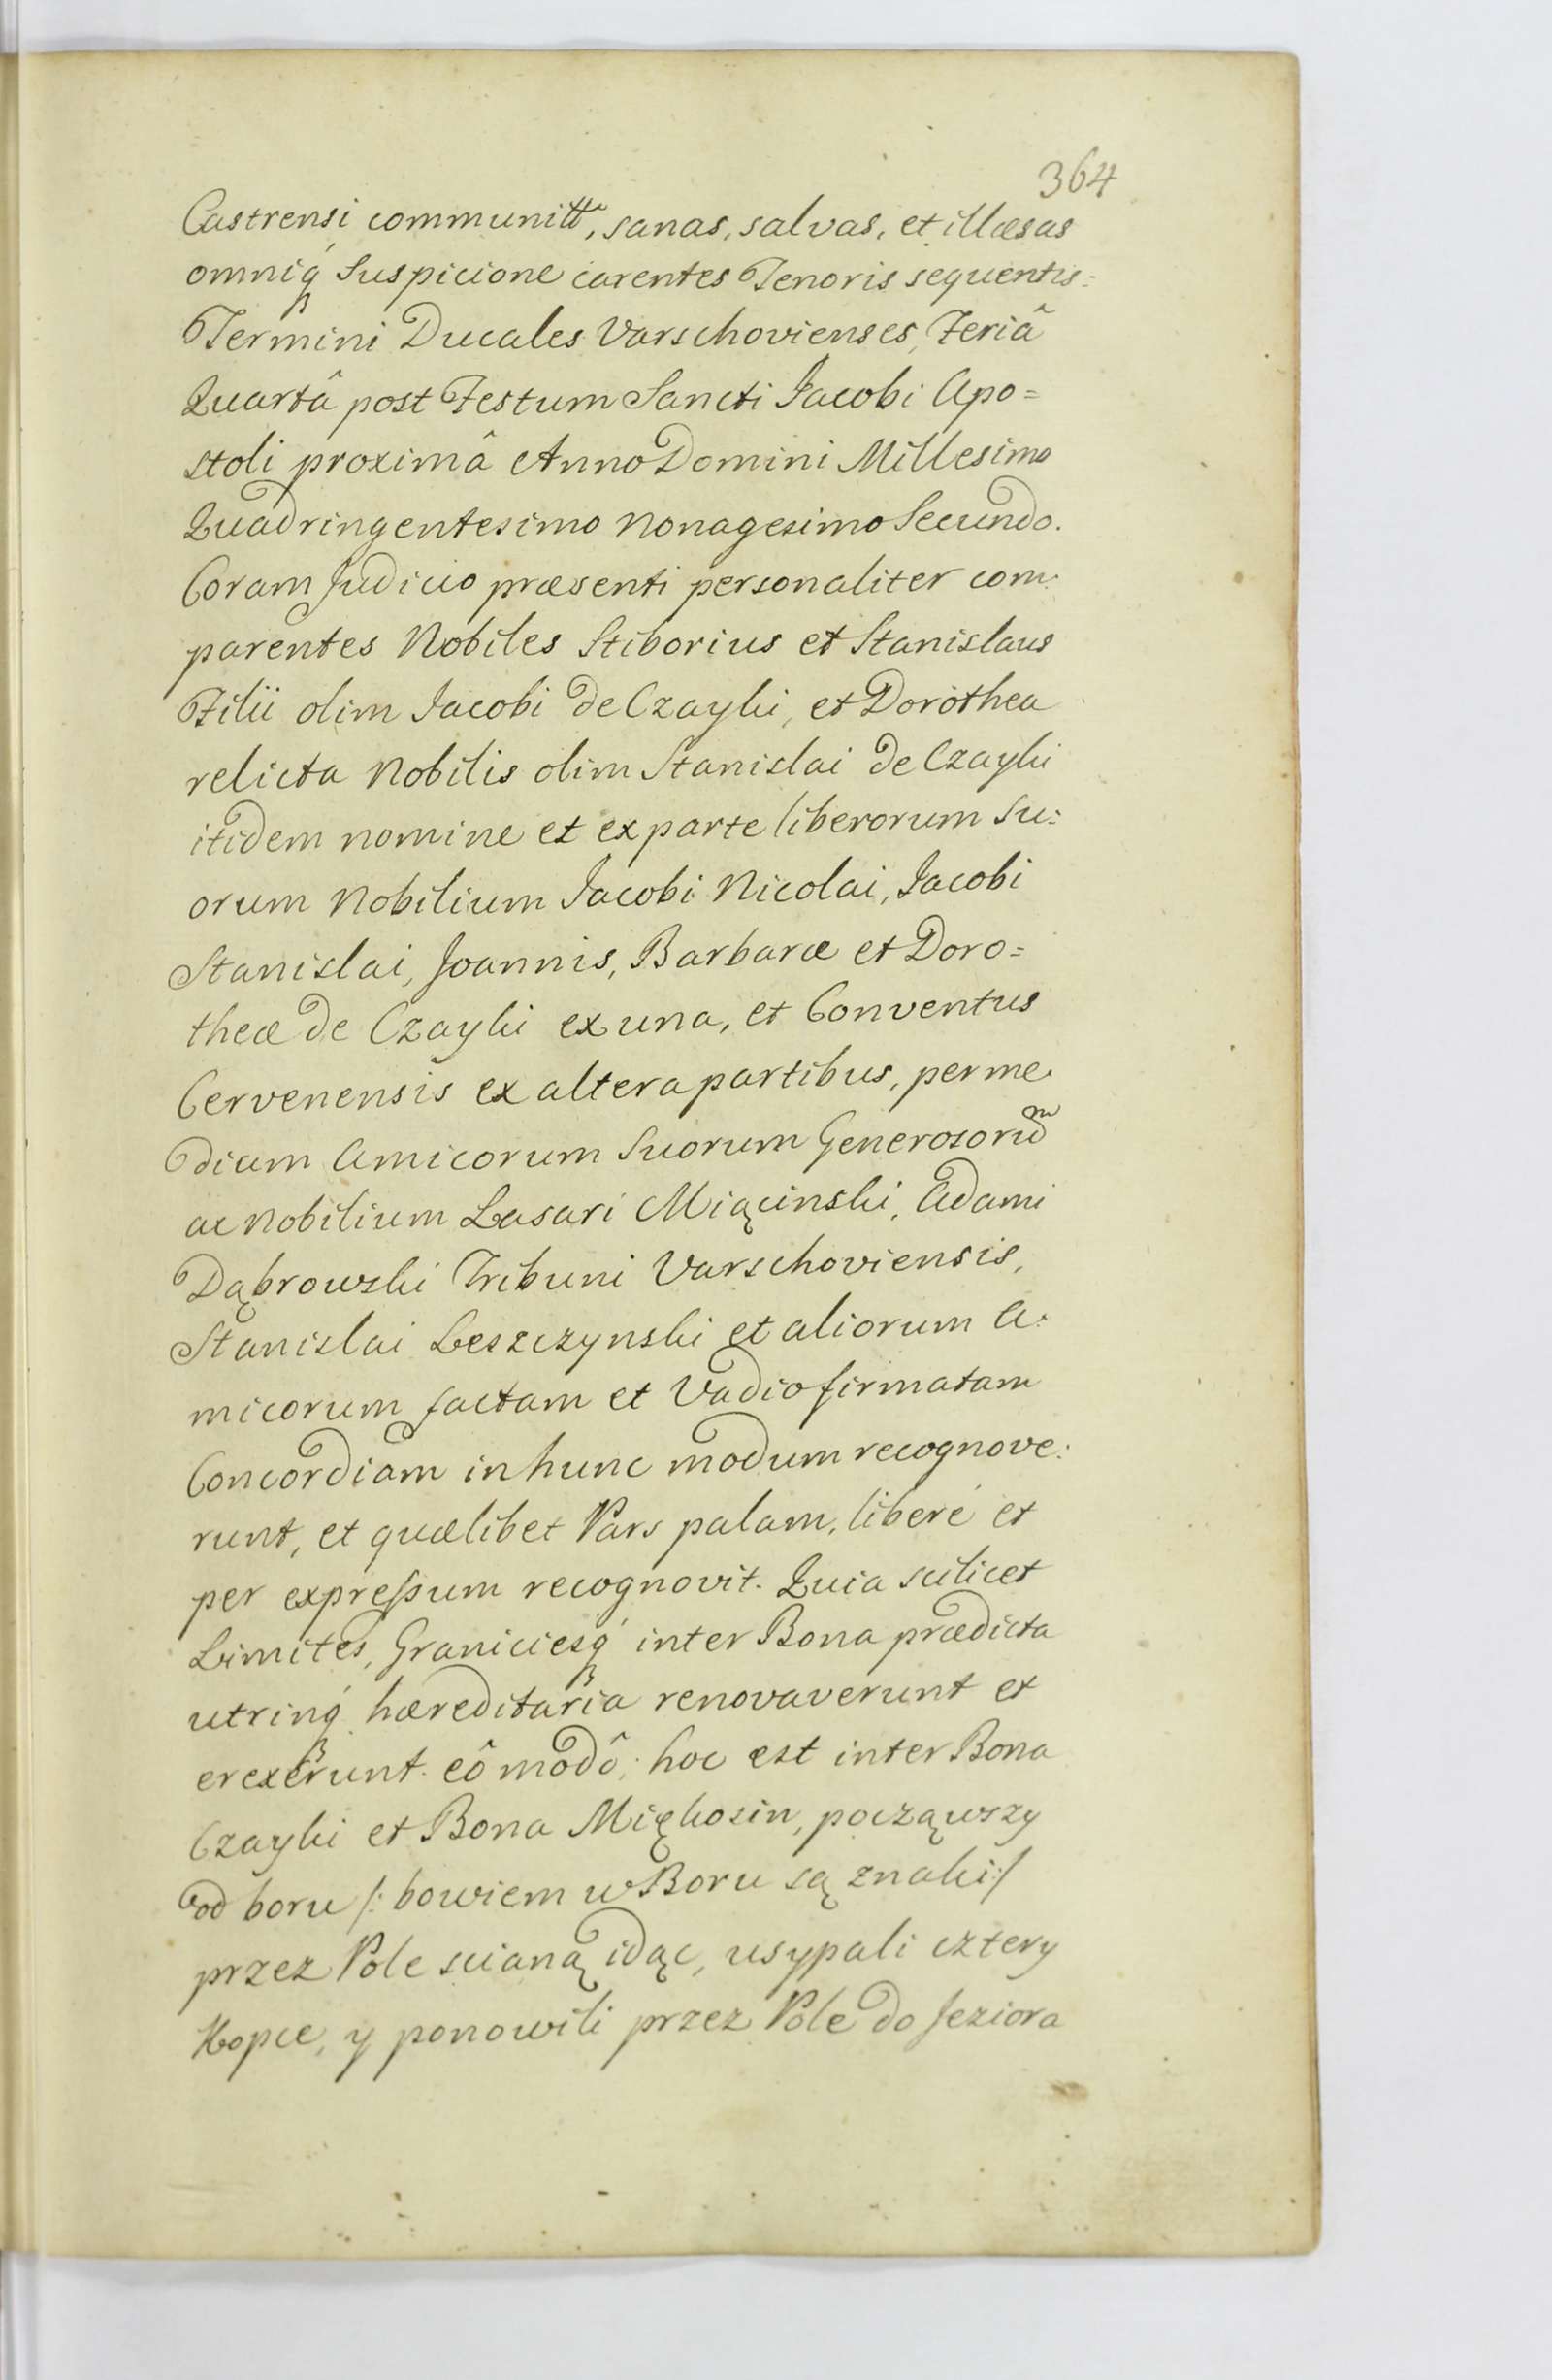 364
Castrensi communitt, sanas, salvas, et illæsas
omniq́ Suspicione carentes Tenoris sequentis:
Termini Ducales Varschovienses, Feriâ
Quartâ post Festum Sancti Jacobi Apo=
stoli proximâ Anno Domini Millesimo
Quadringentesimo Nonagesimo Secundo.
Coram Judicio præsenti personaliter com:
parentes Nobiles Stiborius et Stanislaus
Filii olim Jacobi de Czayki, et Dorothea
relicta Nobilis olim Stanislai de Czayki
itidem nomine et ex parte liberorum Su:
orum Nobilium Jacobi Nicolai, Jacobi
Stanislai, Joannis, Barbaræ et Doro=
theæ de Czayki ex una, et Conventus
Cervenensis ex altera partibus, per me:
dium Amicorum Suorum Generosorum
ac Nobilium Lasari Miącinski, Adami
Dąbrowski Tribuni Varschoviensis,
Stanislai Leszczynski et aliorum A:
micorum factam et Vadio firmatam
Concordiam in hunc modum recognove:
runt, et quælibet Pars palam, liberé et
per expressum recognovit. Quia scilicet
Limites, Graniciesq́ inter Bona prædicta
utrinq́ hæreditaria renovaverunt et
erexerunt eô modô; hoc est inter Bona
Czayki et Bona Miękosin, począwszy
od boru /: bowiem w Boru są znaki :/
przez Pole scianą idąc, usypali cztery
Kopce, y ponowili przez Pole do Jeziora